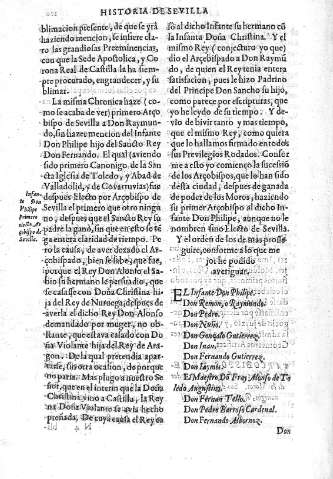 HISTORIA DE SEVILLA
blimacion presente, de que se yrà
haziendo mencion, se infiere cla-
ro las grandiosas Preeminencias,
con que la Sede Apostolica, y Co
rona Real de Castilla la ha siem-
pre procurado, engrandecer, y su
blimar.
La misma Chronica haze (co
mo se acaba de ver) primero Arço
bispo de Sevilla a Don Raymun-
do, sin hazer mencion del Infante
Don Philipe hijo del Sancto Rey
Don Fernando. El qual (aviendo
sido primero Canonigo de la San
cta Iglesia de Toledo, y Abad de
Valladolid, y de Covarruvias) fue
despues Electo por Arçobispo de
Sevilla el primero que ovo ningu
no, despues que el Sancto Rey su
padre la ganò, sin que en esto se tẽ
ga entera claridad de tiempo. Pe-
ro la causa, de aver dexado el Ar-
çobispado, bien se sabe, que fue,
porque el Rey Don Alonso el Sa-
bio su hermano le persuadio, que
se casasse con Doña Christina hi-
ja del Rey de Nuruega, despues de
averla el dicho Rey Don Alonso
demandado por muger, no ob-
stante, que estava casado con Do
ña Violante hija del Rey de Ara-
gon. De la qual pretendia apar-
tarse, sin otra ocasion, de porque
no paria. Mas plugo a nuestro Se
ñor, que en el interin que la Doña
Christina vino a Castilla, la Rey
na Doña Violante se avia hecho
preñada. De cuya causa el Rey ca
Infan-
te Don
Philipe
Primero
Sevilla.
sò al dicho Infante su hermano cõ
la Infanta Doña Christina. Y el
mismo Rey (conjecturo yo que)
dio el Arçobispado a Don Raymũ
do, de quien el Rey tenia entera
satisfacion, pues le hizo Padrino
del Principe Don Sancho su hijo,
como parece por escripturas, que
yo he leydo de su tiempo. Y de-
vio de bivir tanto y mas tiempo,
que el mismo Rey, como quiera
que lo hallamos firmado en todos
los Previlegios Rodados. Confor
me a esto yo comienço la sucessiõ
de los Arçobispos, que lo han sido
desta ciudad, despues de ganada
de poder de los Moros, haziendo
primer Arçobispo al dicho Infan-
te Don Philipe, aunque no le
nombren sino Electo de Sevilla.
Y el orden de los demas prose-
guire, conforme a lo que me-
jor he podido
averiguar.
EL Infante Don Philipe.
Don Remon, o Raymundo.
Don Pedro.
Don Nuño.
Don Gonçalo Gutierrez.
Don Iuan.
Don Fernando Gutierrez.
El Maestro Dõ Fray Alonso de To
ledo Augustino.
Don Fernan Tello.
Don Pedro Barroso Cardenal.
Don Fernando Albornoz.
Don